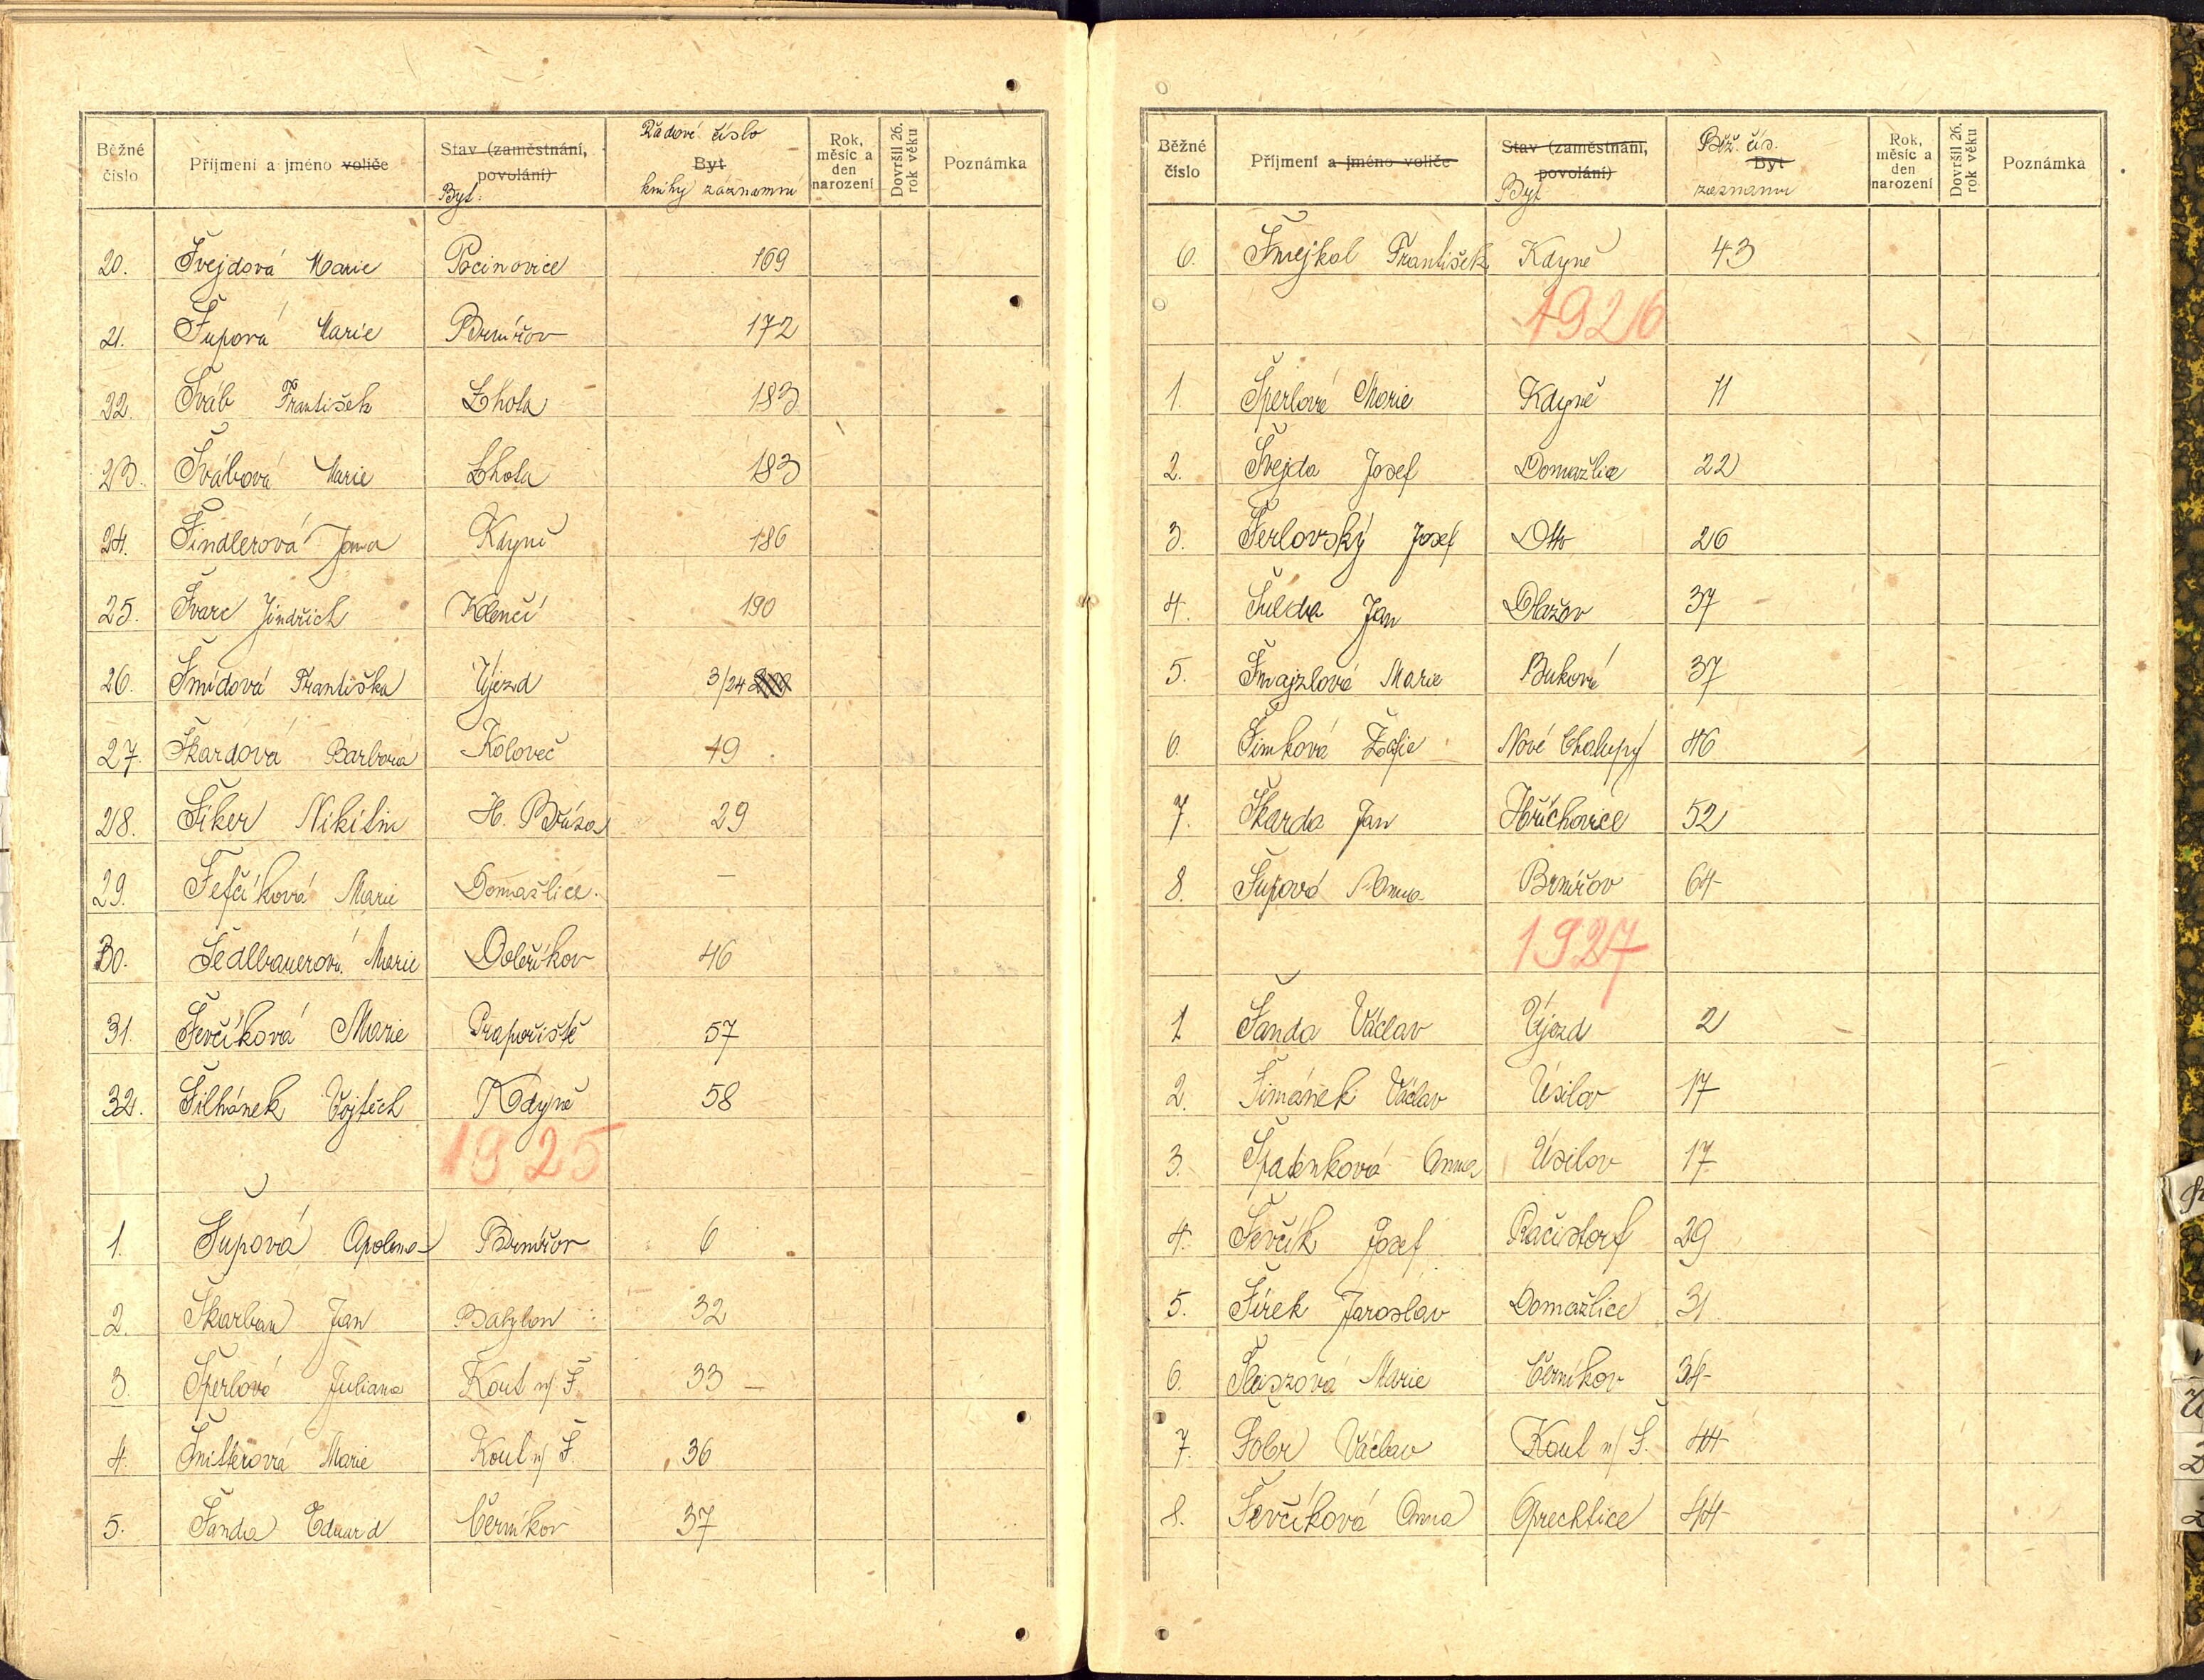 Běžné číslo | Příjmení a jméno voliče | Stav (zaměstnání, povolání) Byt: | Řadové číslo Byt knihy záznamní | Rok, měsíc a den narození | Dovršil 26. rok věku | Poznámka
20. Švejdová Marie Pocinovice 169
21. Šupová Marie Brnířov 172
22 Šváb František Lhota 183
23. Švábová Marie Lhota 183
24. Šindlerová Jana Kdyně 186
25. Švarc Jindřich Klenčí 190
26. Šmídová Františka Újezd 3/24
27. Škardová Barbora Koloveč 19
28. Šiker Nikitin H. Bříza 29
29. Šefčíková Marie Domažlice. —
30. Šedlbauerová Marie Dobříkov 46
31. Ševčíková Marie Prapořiště 57
32. Šilhánek Vojtěch Kdyně 58
1925
1. Šupová Apolena Brnířov 6
2. Škarban Jan Babylon 32
3. Šperlová Juliana Kout n/ Š. 33 —
4. Šnitterová Marie Kout n/ Š. 36
5. Šanda Eduard Černíkov 37
Běžné číslo | Příjmení a jméno voliče | Stav (zaměstnání, povolání) Byt | Běž. čís. Byt záznamu | Rok, měsíc a den narození | Dovršil 26. rok věku | Poznámka
6. Šmejkal František Kdyně 43
1926
1. Šperlová Marie Kdyně 11
2. Švejda Josef Domažlice 22
3. Šerlovský Josef Dtto 26
4. Šulda Jan Dlažov 37
5. Šmajzlová Marie Buková 37
6. Šimková Žofie Nové Chalupy 46
7. Škarda Jan Hříchovice 52
8. Šupová Anna Brnířov 64
1927
1 Šanda Václav Újezd 2
2. Šimánek Václav Úsilov 17
3. Špatenková Anna Úsilov 17
4. Ševčík Josef Račistorf 29
5. Šírek Jaroslav Domažlice 31
6. Marie Černíkov 34
7. Šobr Václav Kout n/ Š. 44
8. Ševčíková Anna Oprechtice 44